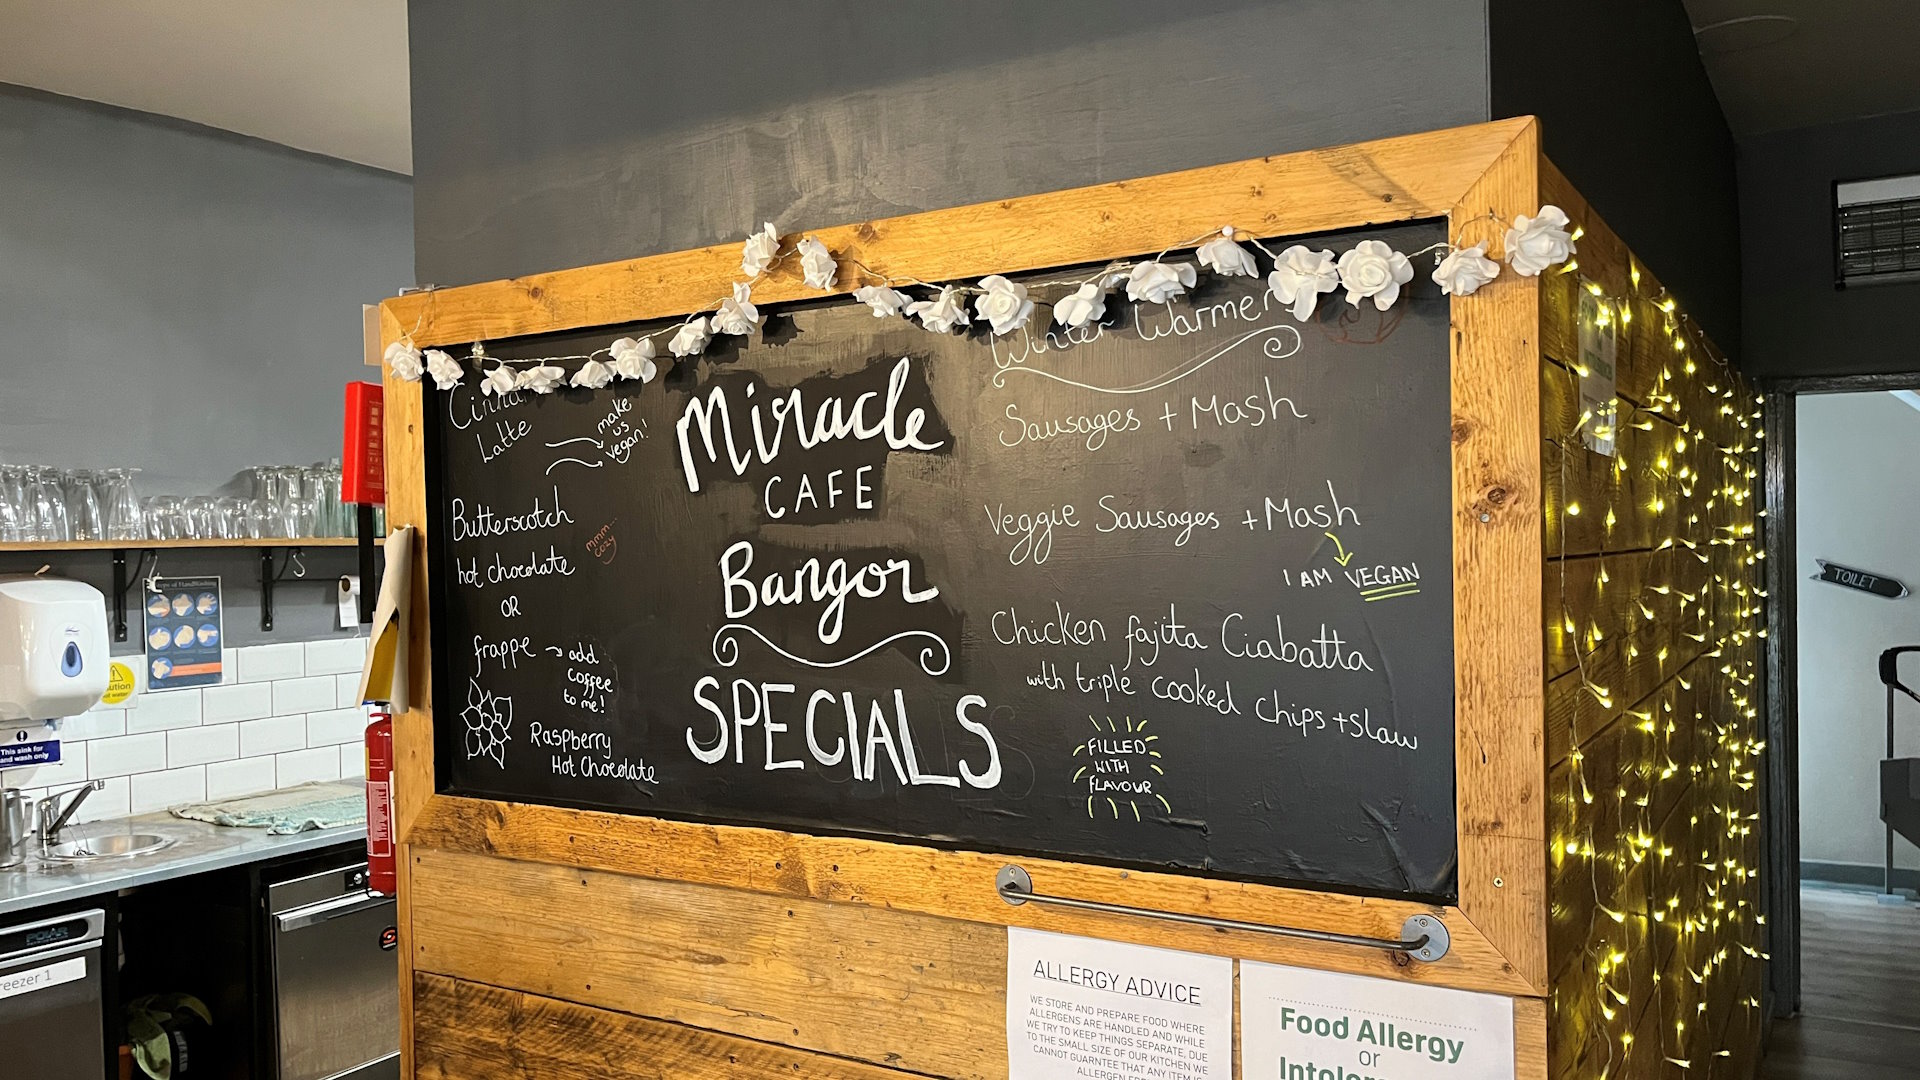 Latte
make
us
vegan!
Butterscotch
hot chocolate
mmm...
cozy
OR
frappe
add
coffee
to me!
Raspberry
Hot Chocolate
Miracle
CAFE
Bangor
SPECIALS
Winter Warmers
Sausages + Mash
Veggie Sausages + Mash
I AM VEGAN
Chicken fajita Ciabatta
with triple cooked chips + slaw
FILLED
WITH
FLAVOUR
ALLERGY ADVICE
WE STORE AND PREPARE FOOD WHERE
ALLERGENS ARE HANDLED AND WHILE
WE TRY TO KEEP THINGS SEPARATE, DUE
TO THE SMALL SIZE OF OUR KITCHEN WE
CANNOT GUARNTEE THAT ANY ITEM IS
ALLERGEN
Food Allergy
or
TOILET
This sink for
hand wash only
POLAR